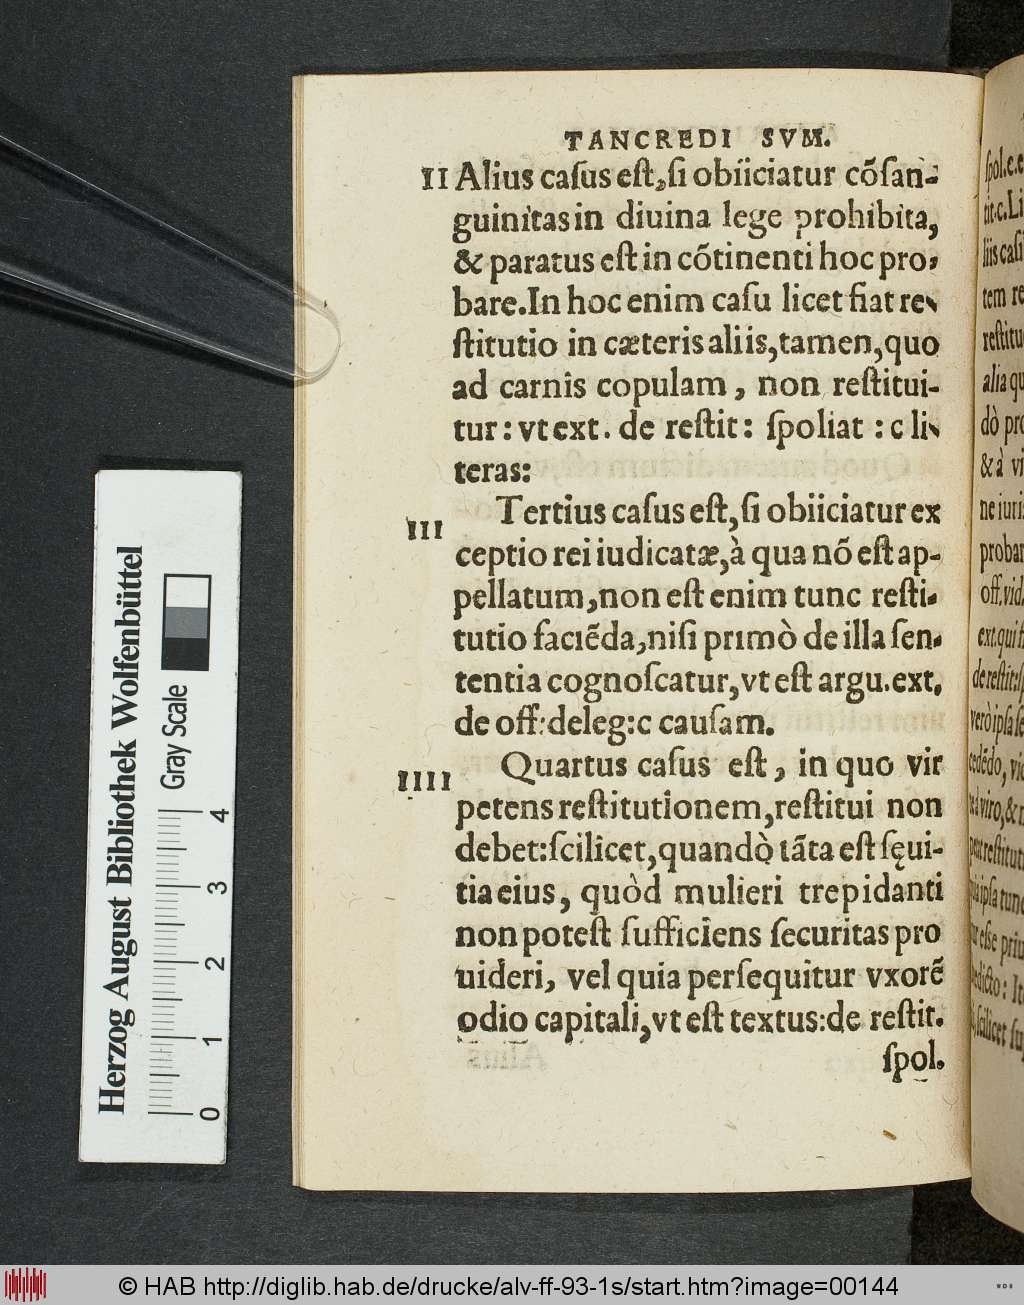 TANCREDI SVM.
II Alius casus est, si obiiciatur cõsan-
guinitas in diuina lege prohibita,
& paratus est in cõtinenti hoc pro-
bare. In hoc enim casu licet fiat re-
stitutio in cæteris aliis, tamen, quo
ad carnis copulam, non restitui-
tur: vt ext. de restit: spoliat: c li-
teras:
III Tertius casus est, si obiiciatur ex
ceptio rei iudicatæ, à qua nõ est ap-
pellatum, non est enim tunc resti-
tutio faciẽda, nisi primò de illa sen-
tentia cognoscatur, vt est argu. ext.
de off: deleg: c causam.
IIII Quartus casus est, in quo vir
petens restitutionem, restitui non
debet: scilicet, quandò tãta est sęui-
tia eius, quòd mulieri trepidanti
non potest sufficiens securitas pro
uideri, vel quia persequitur vxorẽ
odio capitali, vt est textus: de restit.
spol.
spol. c. e
tit. c. Li
liis casi
tem re
restitu
alia qu
dò pro
& à vi
ne iuri
probar
off. vid.
ext. qui fi
de restit: s
verò ipsa se
cedẽdo, vi
à viro, &
restitut
ipsa tunc
esse priu
dicto: It
scilicet su
Herzog August Bibliothek Wolfenbüttel
Gray Scale
0 1 2 3 4
© HAB http://diglib.hab.de/drucke/alv-ff-93-1s/start.htm?image=00144